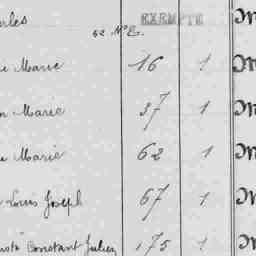 rles EXEMPTE
52 N° E.
Marie 16 1
Marie 37 1
Marie 62 1
Louis Joseph 67 1
Constant Julien 175 1